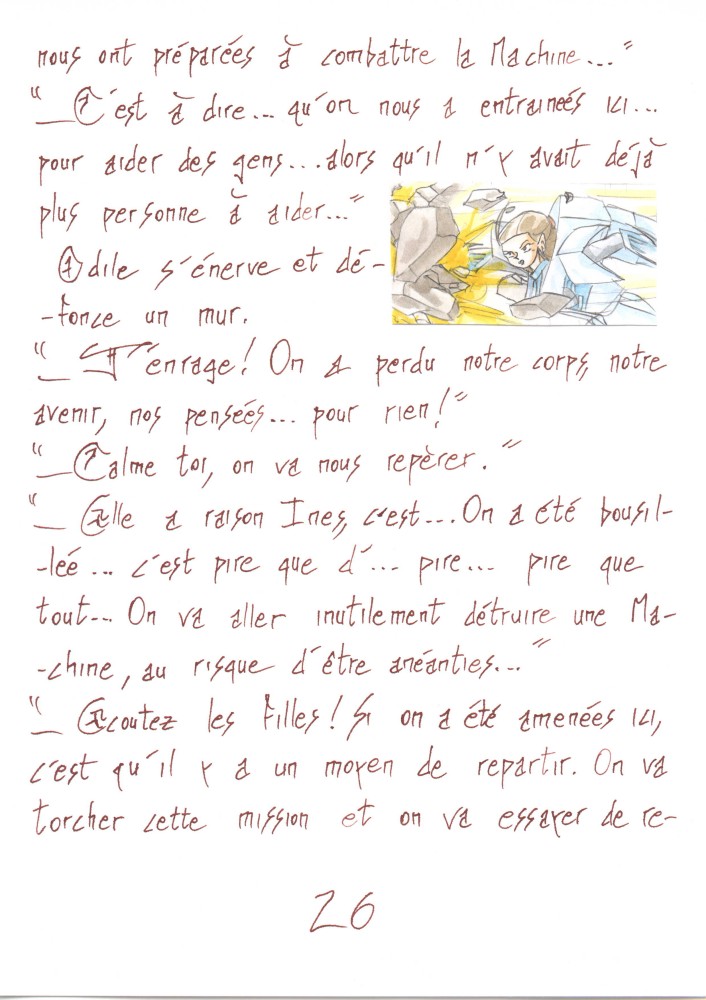 nous ont préparées à combattre la Machine..."
"_C'est à dire... qu'on nous a entrainées ici...
pour aider des gens...alors qu'il n'y avait déjà
plus personne à aider..."
Odile s'énerve et dé-
-fonce un mur.
"_J'enrage! On a perdu notre corps, notre
avenir, nos pensées... pour rien!"
"_Calme toi, on va nous repèrer."
"_Elle a raison Ines, c'est...On a été bousil-
-leé... c'est pire que d'... pire... pire que
tout... On va aller inutilement détruire une Ma-
-chine, au risque d'être anéanties..."
"_Ecoutez les filles! Si on a été amenées ici,
c'est qu'il y a un moyen de repartir. On va
torcher cette mission et on va essayer de re-
26